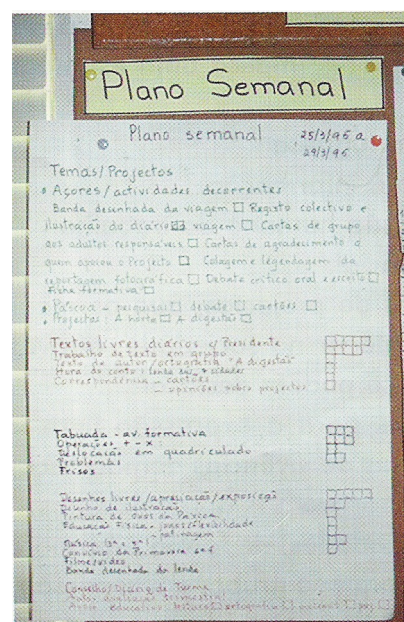 Plano Semanal
Plano semanal 25/3/96 a
29/3/96
Temas/Projectos:
Açores/actividades decorrentes
Banda desenhada da viagem □ Registo colectivo e
ilustração do diário da viagem □ Cartas de grupo
aos adultos responsáveis □ Cartas de agradecimento a
quem apoiou o Projecto □ Colagem e legendagem da
reportagem fotográfica □ Debate crítico oral e escrito □
Ficha formativa □
Páscoa - pesquisa □ debate □ cartões □
Projectos: A horta □ A digestão □
Textos livres diários c/ Presidente
Trabalho de texto em grupo
Texto de autor/ortografia "A digestão"
Hora do conto: lenda
Correspondência - cartões
- opiniões sobre projectos
Tabuada - av. formativa
Operações + - x
Deslocação em quadriculado
Problemas
Frisos
Desenhos livres/apreciação/exposição
Desenho de ilustração
Pintura de ovos da Páscoa
Educação Física - jogos/flexibilidade
- patinagem
Música
Convívio da Primavera
Filme/vídeo
Banda desenhada da lenda
Conselho/Diário de Turma
Auto avaliação trimestral
Apoio educativo: leitura □ ortografia □